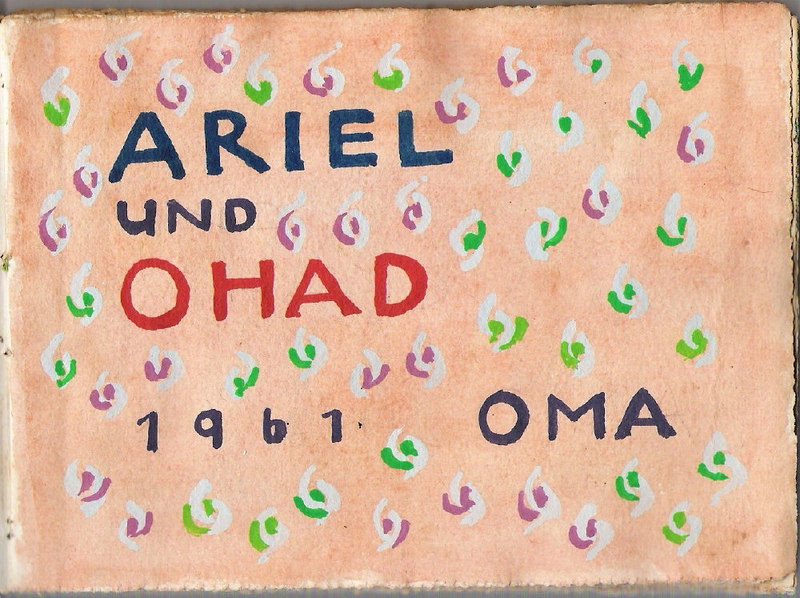 ARIEL
UND
OHAD
1961. OMA